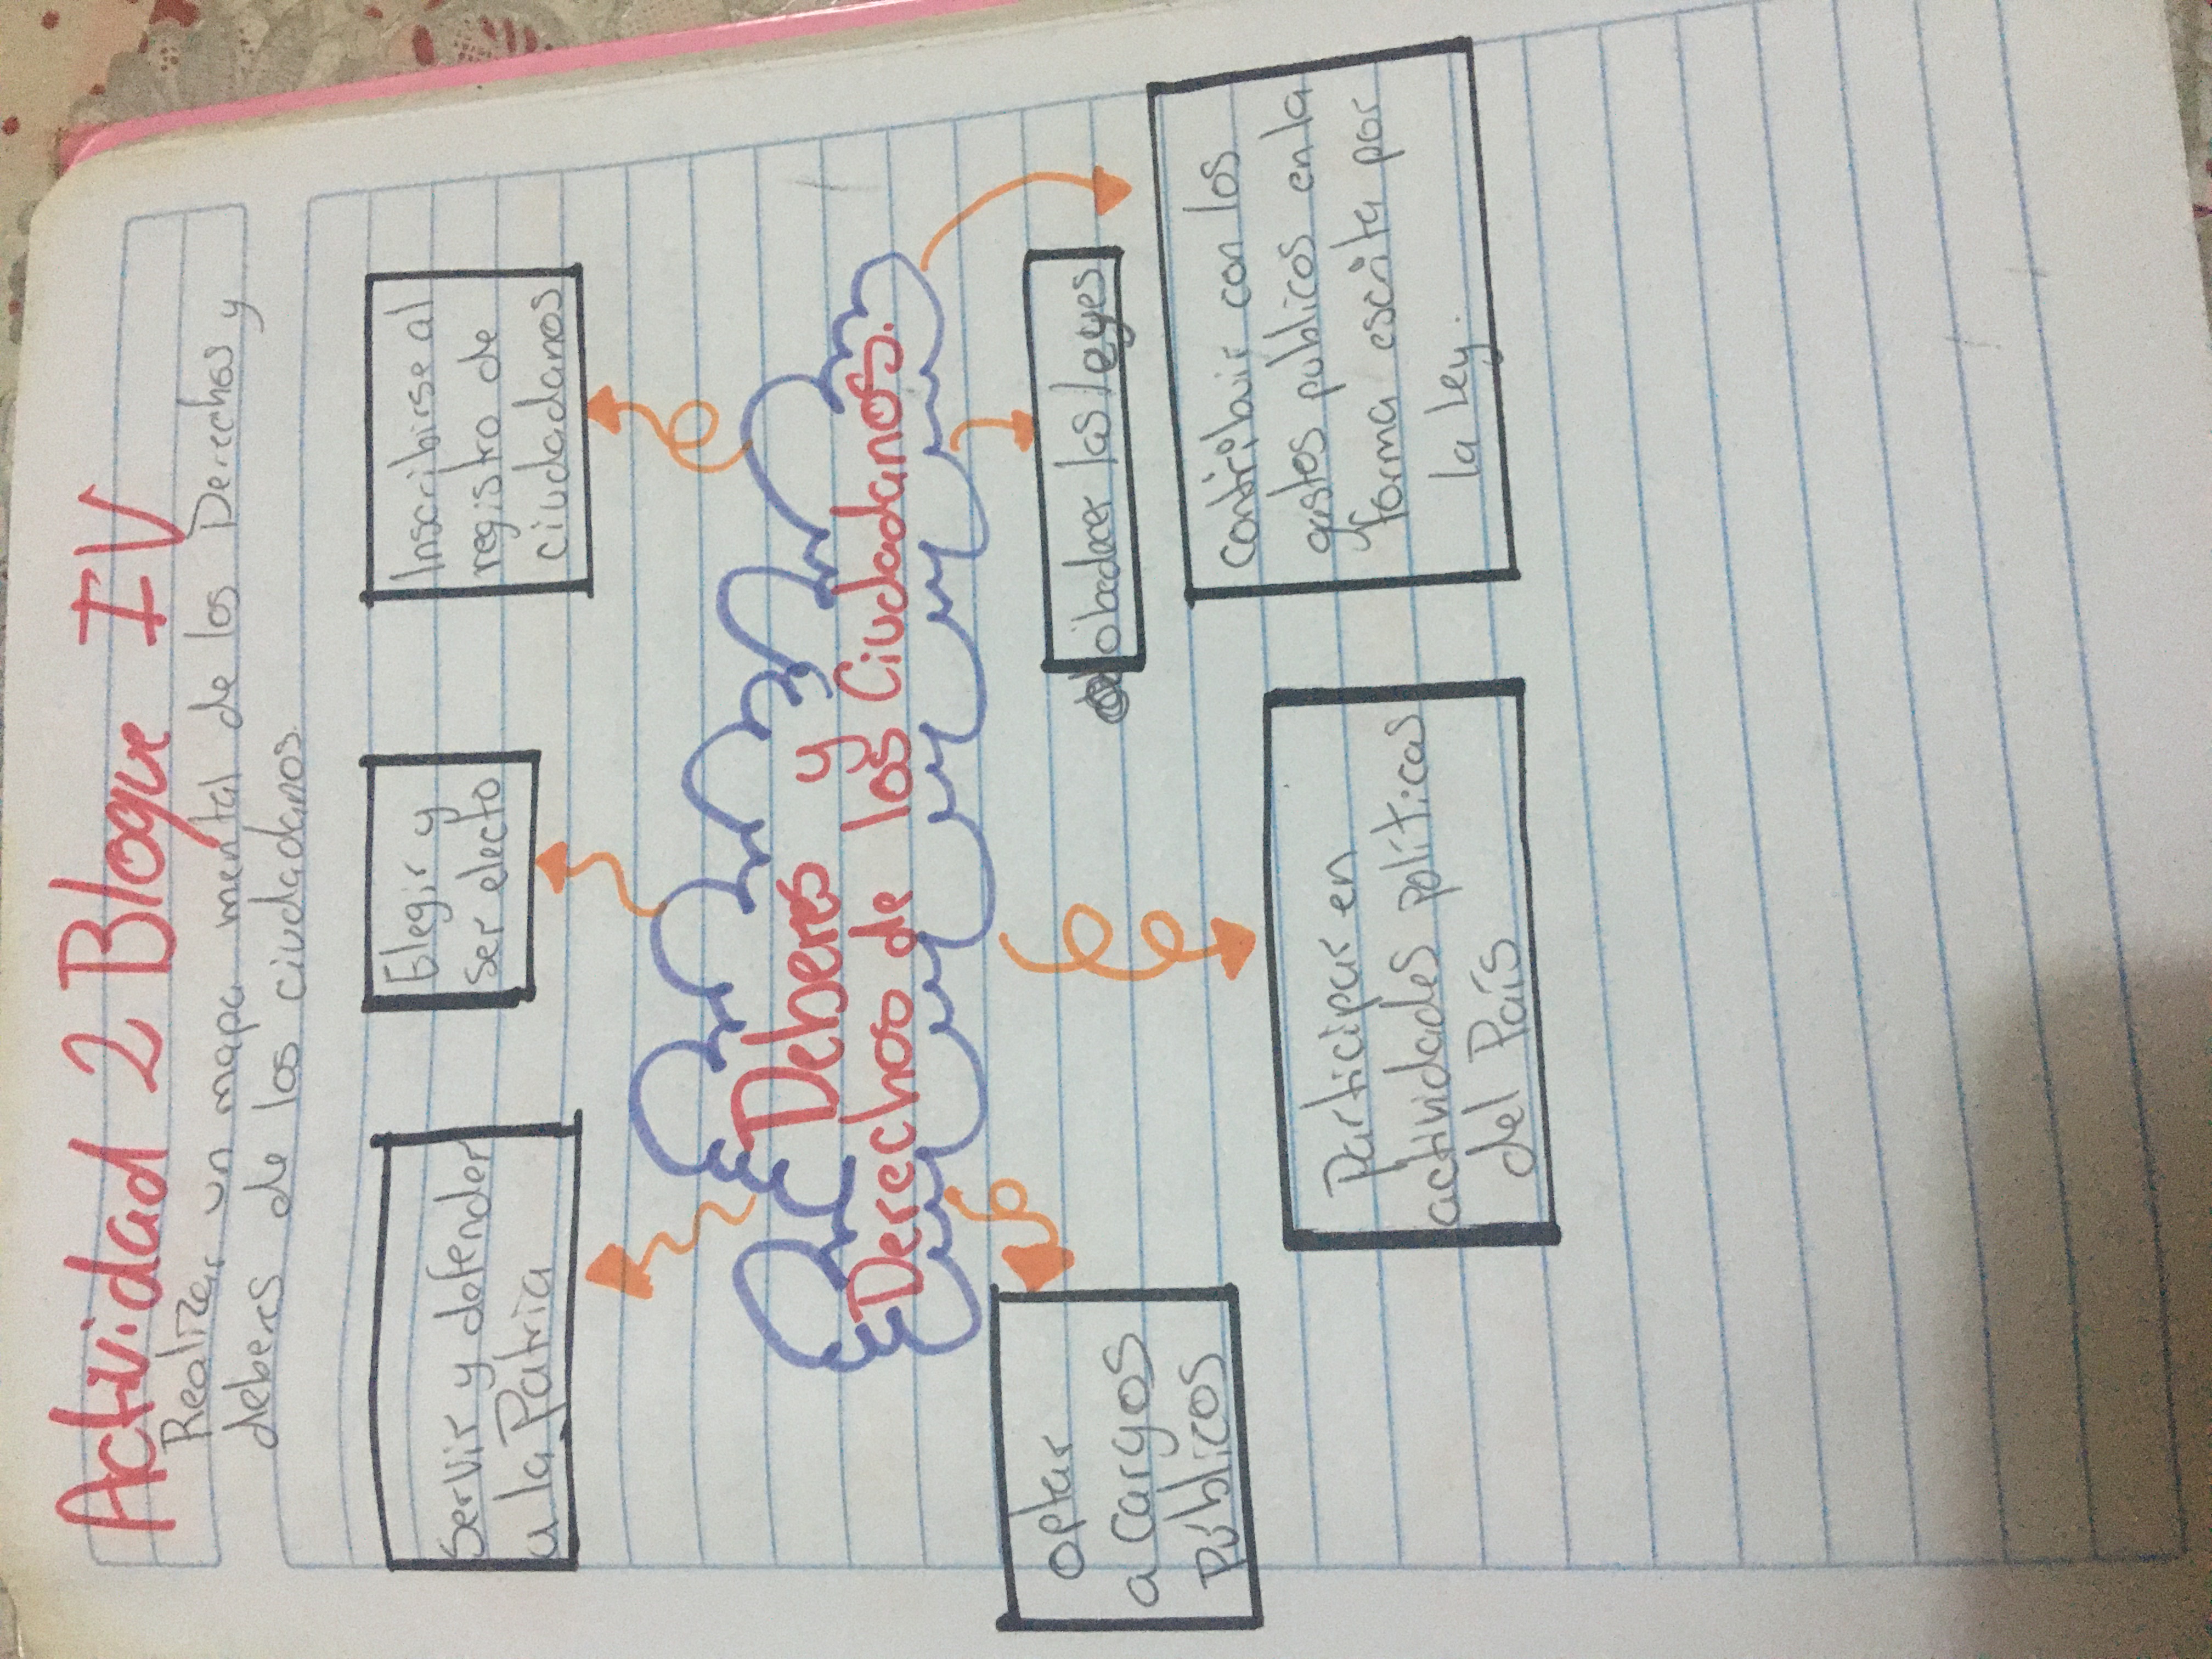 Actividad 2 Bloque IV
Realizar un mapa mental de los Derechos y
deberes de los ciudadanos.
Servir y defender
a la Patria
Elegir y
ser electo
Inscribirse al
registro de
ciudadanos
Deberes y
Derechos de los Ciudadanos.
optar
a cargos
públicos
Participar en
actividades políticas
del País
obedecer las leyes
contribuir con los
gastos publicos en la
forma escrita por
la ley.